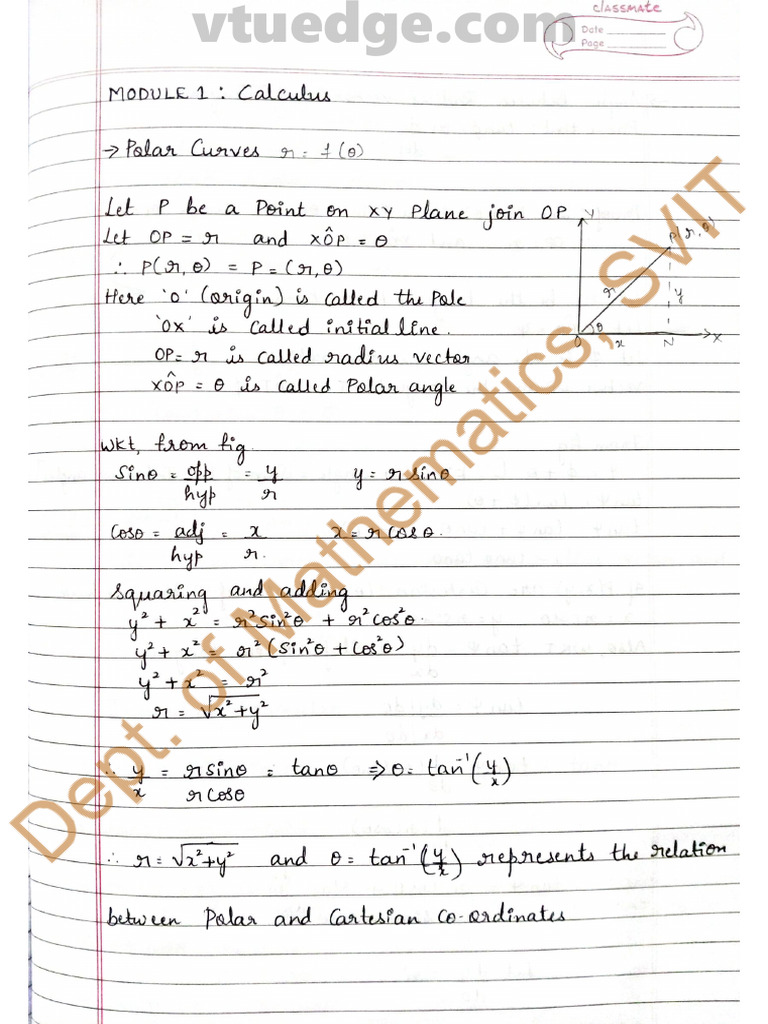 vtuedge.com
classmate
Date
Page
MODULE 1 : Calculus
→ Polar Curves r = f(θ)
Let P be a Point on XY Plane join OP
Let OP = r and XÔP = θ
∴ P(r, θ) = P = (r, θ)
Here 'O' (origin) is called the Pole
'OX' is called initial line.
OP = r is called radius vector
XÔP = θ is called Polar angle
Y
P(r, θ)
r
y
θ
O x N X
WKT, from fig.
Sinθ = opp/hyp = y/r y = r sinθ
Cosθ = adj/hyp = x/r. x = r cosθ.
Squaring and adding
y² + x² = r² sin²θ + r² cos²θ.
y² + x² = r² (sin²θ + cos²θ)
y² + x² = r²
r = √x² + y²
∴ y/x = r sinθ/r cosθ = tanθ ⇒ θ = tan⁻¹(y/x)
∴ r = √x² + y² and θ = tan⁻¹(y/x) represents the relation
between Polar and Cartesian co-ordinates
Dept. of Mathematics, SVIT